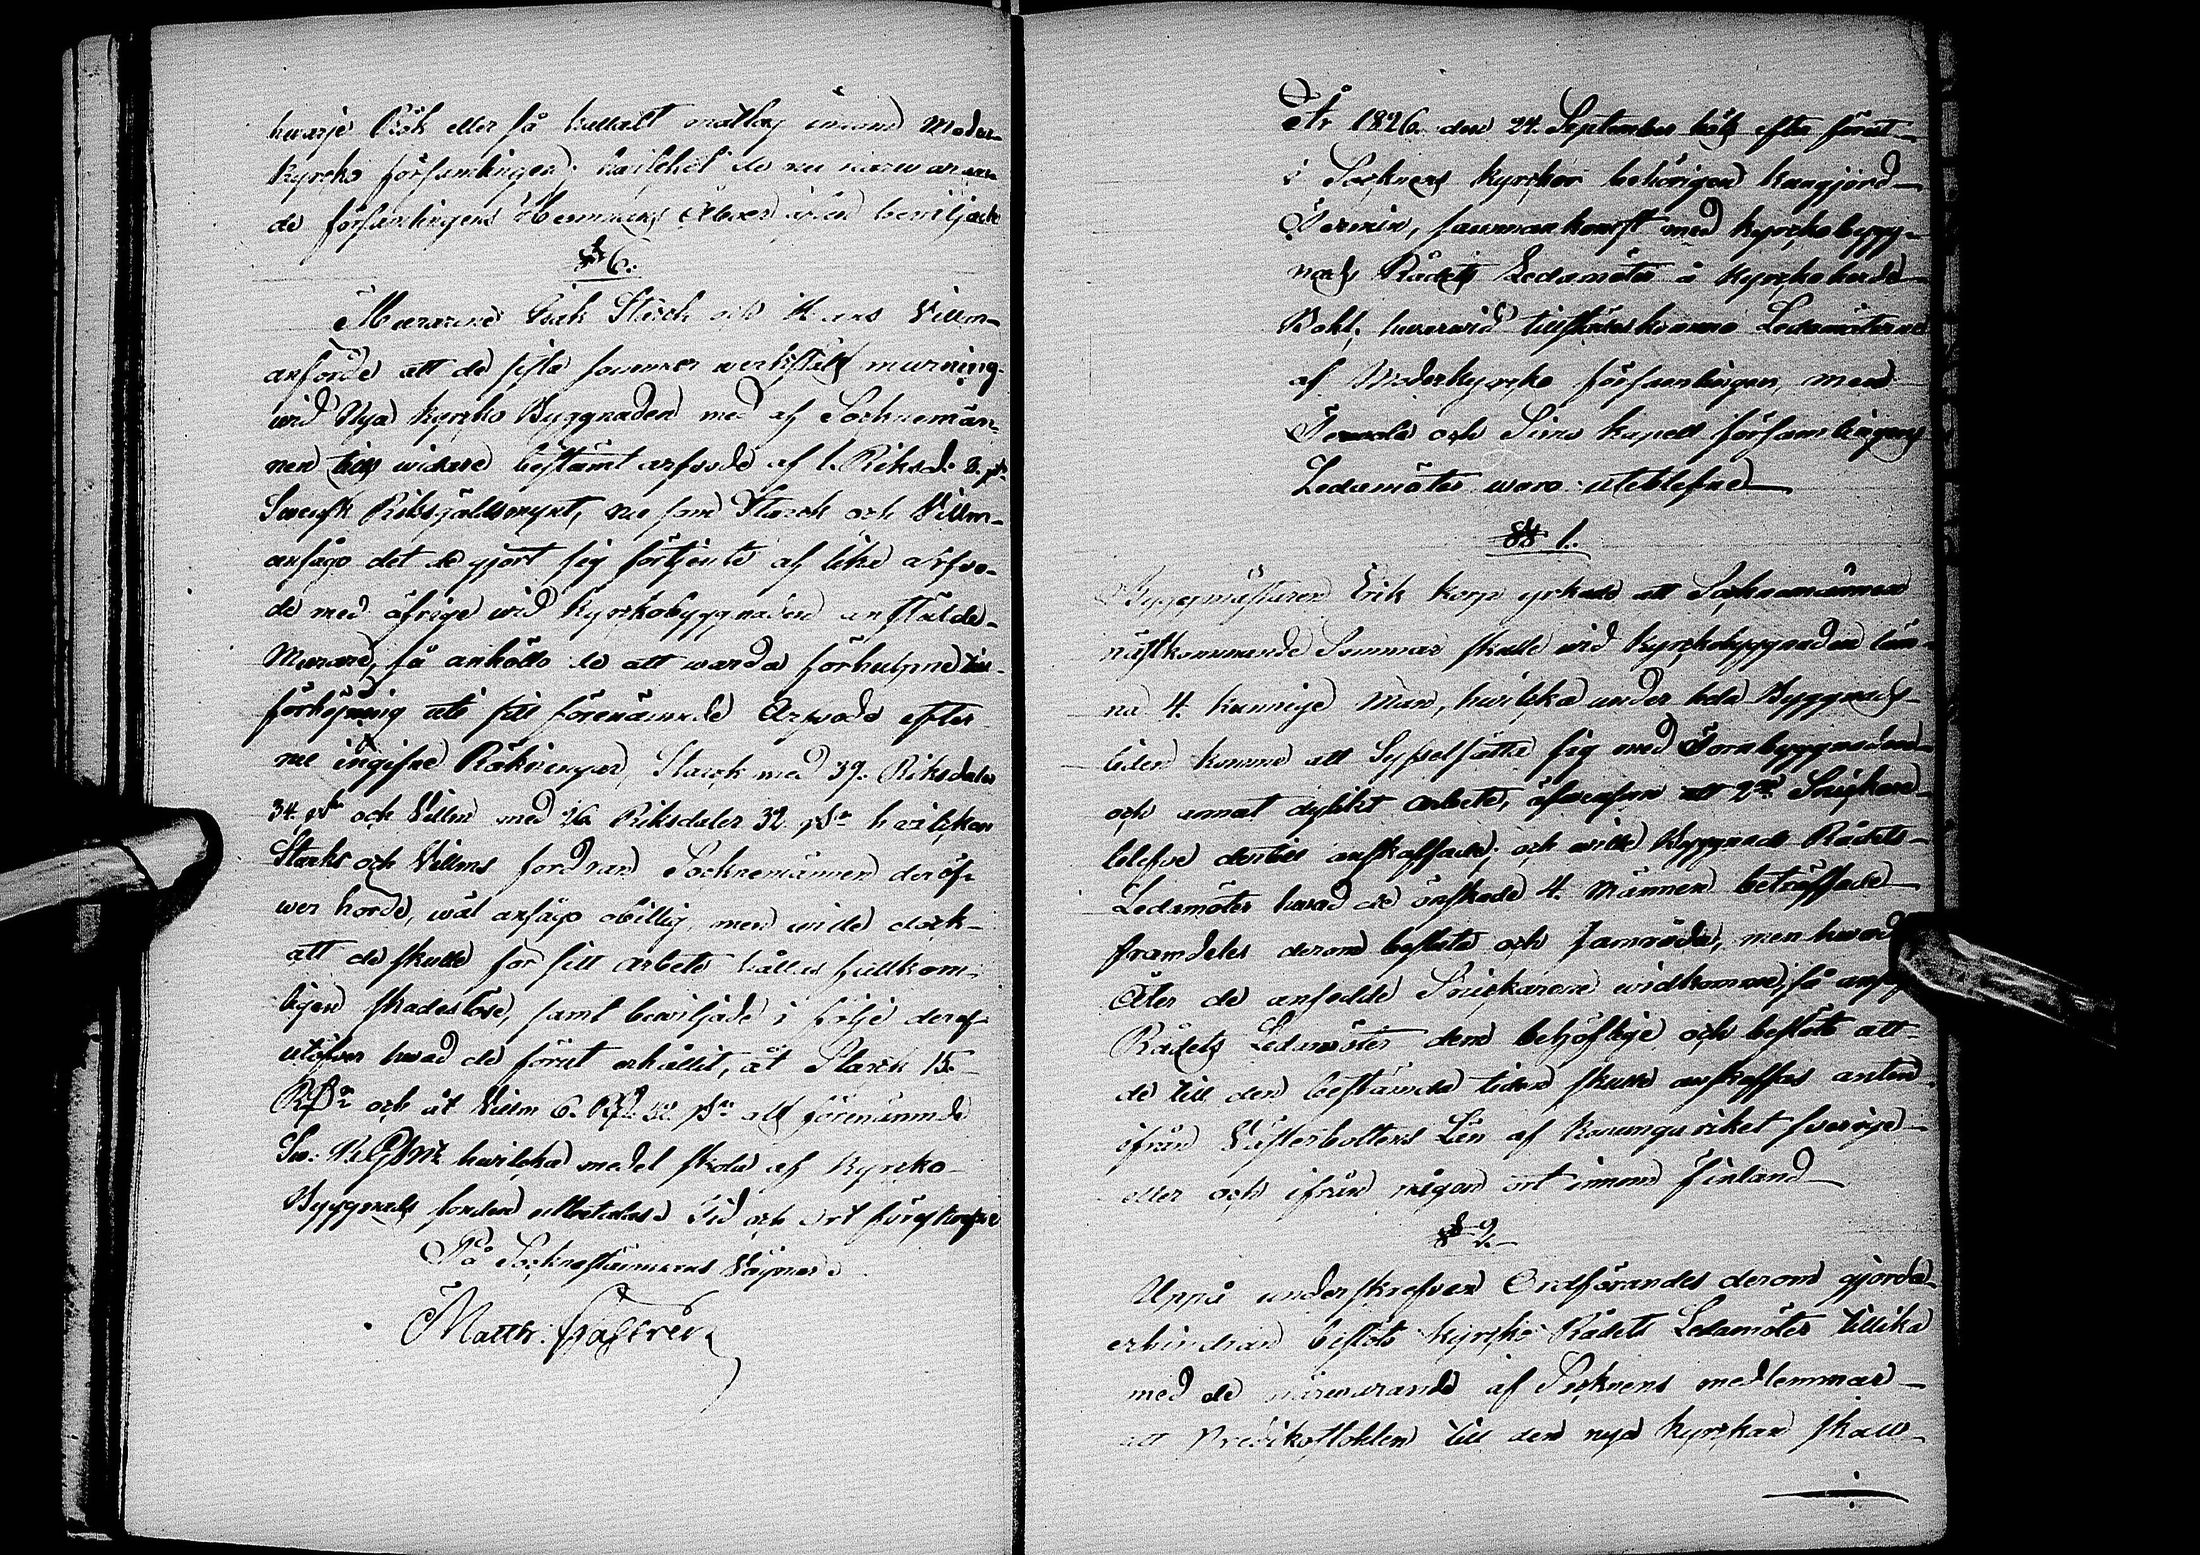 hwarje Rök eller så kallalt matlag innom Moder-
kyrcko församlingen. hwilcket de nu närwaran-
de församlingens Hemmans Åboer äfven beviljade
§ 6.
Murarene Isak Starck och Hans Villm-
anförde att de sista sommar werkstäldt murning-
wid Nya kyrcko Byggnaden med af Socknemän-
nen till widare bestämt arfvode af 1. Riksd: 8. s:
Swensk Riksgäldsmynt, nu som Starck och Villm-
ansågo det de gjort sig förtjente af lika arfvo-
de med öfrige wid kyrckobyggnaden anstälde-
Murare, så anhöllo de att warda förhulpne till
förhöjning uti sitt förenämnde Arfvode efter
nu ingifne Räkningar, Starck med 39. Riksdaler
34. s: och Villm med 26 Riksdaler 32 s: hwilcken
Starks och Villms fordran Socknemännen deröf-
wer hörde, wäl ansågo obillig, men wille dock-
att de skulle för sitt arbete hållas fullkom-
ligen skadeslöse, samt bewiljade i följe deraf
utöfver hwad de förut erhållit, åt Starck 15.
R: och åt Villm 6. R: 32 s: allt förenämnde
Sw: R.G.Mt hwilcka medel skola af Kyrcko-
Byggnads fonden utbetalas. Tid och Ort föreskrefne
På Socknestämmans Vägnar.
Matth: Castrén
År 1826. den 24. September hölts efter förut-
i Socknens kyrckor behörigen kungjord-
Termin, sammankomst med kyrckobygg-
nads Rådets Ledamöter å kyrckoherde-
Bohl, hwarwid tillstädeskomne Ledamöterne
af Moderkyrcko församlingen, men
Tervola och Simo kapell församlingars
Ledamöter woro uteblefne
§ 1.
Byggmästaren Erik Korp yrkade att Socknemännen
nästkommande Sommar skulle wid Kyrckobyggnaden läm-
na 4. kunnige Män, hwilcka under hela Byggnads-
tiden komme att Sysselsätta sig med Tornbyggnaden
och annat dylikt arbete, äfvensom att 2ne Snickare-
blefve dertill anskaffade; och wille Byggnads Rådets-
Ledamöter hwad de önskade 4. Männen beträffade
framdeles derom besluta och samråda, men hwad
Åter de ansedde Snickarene widkomme, så ansågo
Rådets Ledamöter dem behöflige och beslöto att-
de till den bestämda tiden skulle anskaffas antin-
ifrån Wästerbottens Län af Konungariket Sverige-
eller och ifrån någon ort innom Finland
§ 2.
Uppå underskrefven Ordförandes derom gjorda
erhindran beslöto kyrcko Rådets Ledamöter tillika
med de närwarande af Socknens medlemmar-
att Predikostohlen till den nya kyrckan skall-